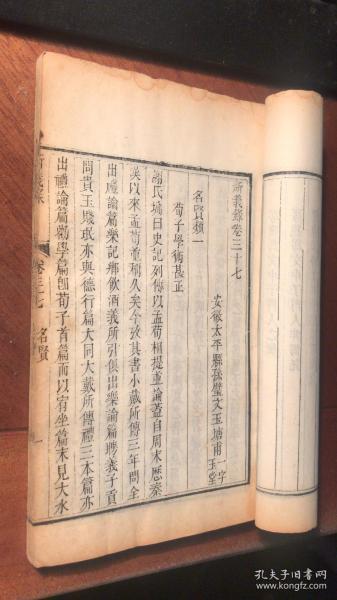 新義錄卷三十七
安徽太平縣孫璧文玉塘甫一字玉堂
名賢類一
荀子學術甚正
謝氏墉曰史記列傳以孟荀相提並論蓋自周末歷秦
漢以來孟荀並稱久矣今攷其書小戴所傳三年問全
出禮論篇樂記鄉飲酒義所引俱出樂論篇聘義子貢
問貴玉賤珉亦與德行篇大同大戴所傳禮三本篇亦
出禮論篇勸學篇卽荀子首篇而以宥坐篇末見大水
新義錄 卷三十七 名賢 一
孔夫子旧书网